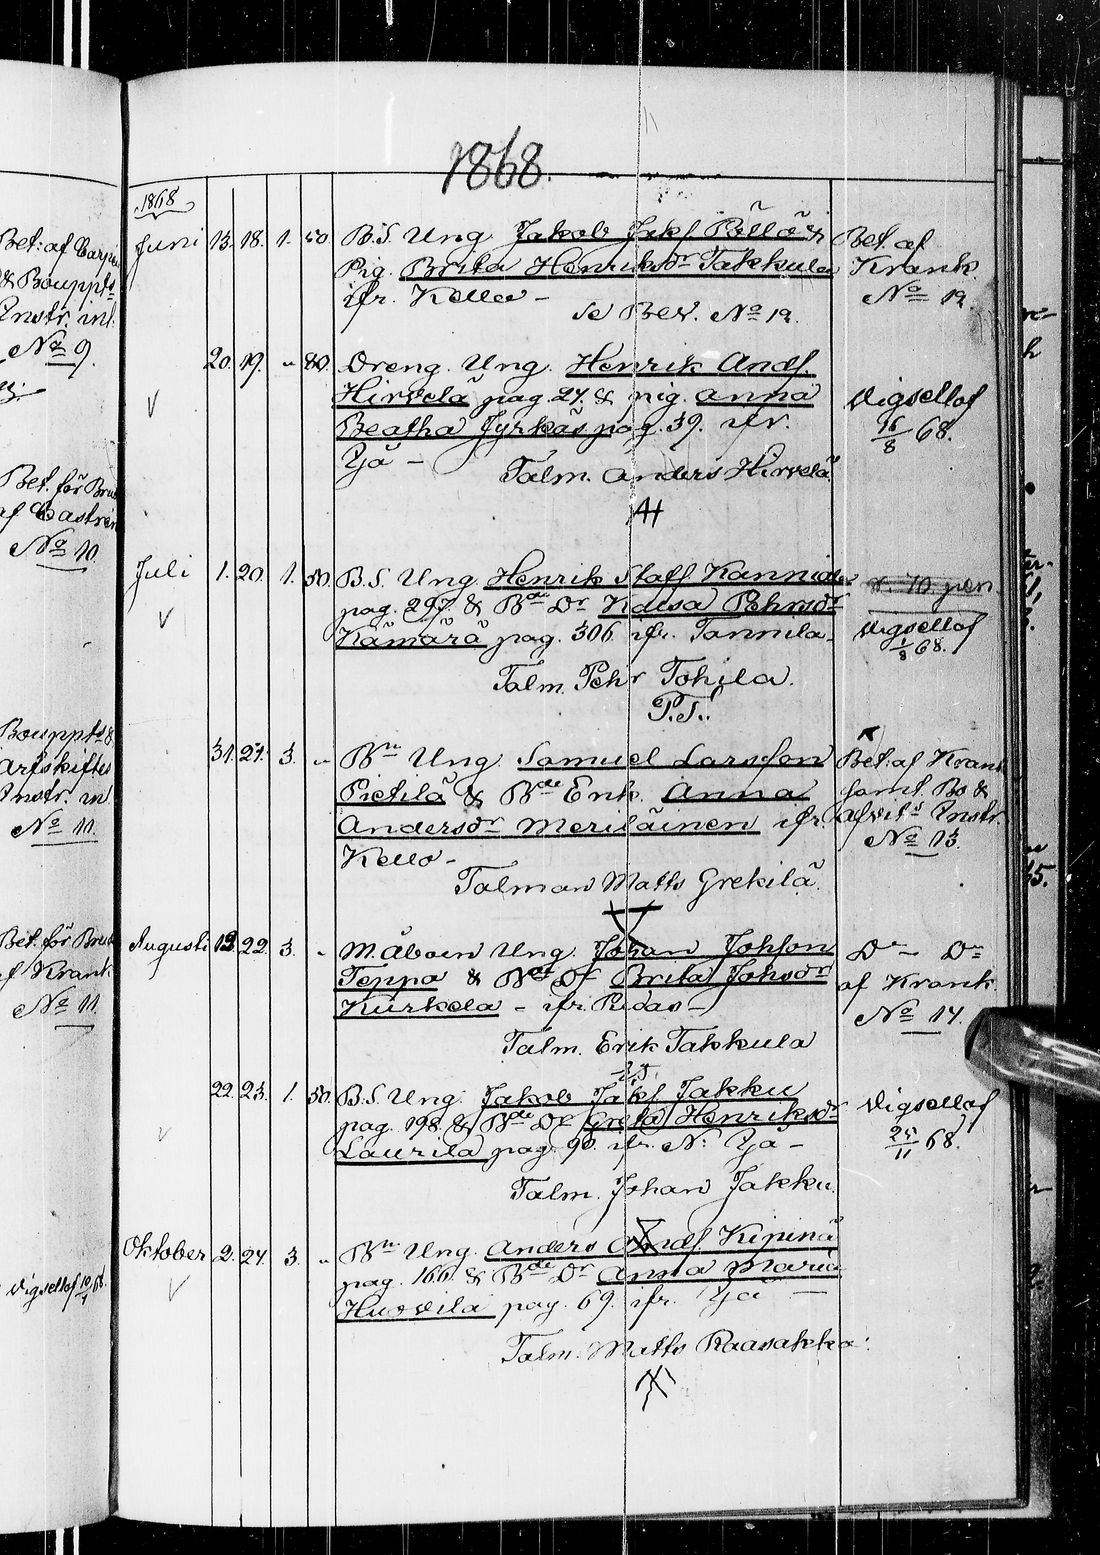 1868.
1868
Juni 13. 18. 1. 50. B.S. Ung. Jakob Jakf Pällö &
Pig. Brita Henriksdr Takkula
ifr. Kello -
se Bev. No 12.
Bet. af
Krank.
No 12.
20. 19. " 80. Dreng. Ung. Henrik Andf.
Hirvelä pag. 27. & pig. Anna
Beatha Jyrkäs pag. 39. ifr.
Yjä -
Talm. Anders Hirvelä
Vigsellaf
16/8 68.
Juli 1. 20. 1. 50. B.S. Ung. Henrik Staff Kanniai
pag. 297. & Bde Dr Kaisa Pehrsdr
Kämärä pag. 306 ifr. Tannila -
Talm. Pehr Tohila.
P.T.
70. pen.
Vigsellaf
1/8 68.
31. 21. 3. " Bn Ung. Samuel Larsson
Pietilä & Bde Enk. Anna
Andersdr Meriläinen ifr.
Kello -
Talman Matts Grekilä.
Bet. af Krank
samt Bo &
Afvit. Instr.
No 13.
Augusti 12 22. 3. " M. åboen Ung. Johan Johsson
Teppo & Bde Dr Brita Johsdr
Kurkela - ifr. Pudas -
Talm. Erik Takkula
Do - Do
af Krank.
No 14.
22. 23. 1. 50. B.S. Ung. Jakob Jakf Jakku
pag. 198. & Bde Dr Greta Henriksdr
Laurila pag. 90. ifr. N: Yjä -
Talm. Johan Jakku.
Vigsellaf
25/11 68.
Oktober 2. 24. 3. " Bn Ung. Anders Andf. Kipinä
pag. 166. & Bde Dr Anna Maria
Huovila pag. 69. ifr. Yjä -
Talm. Matts Raasakka.
No 9.
Bet. för Brud
af Castrén
No 10.
Bouppts &
Arfskiftes
Instr. inl
No 11.
Bet. för Brud
af Krank
No 11.